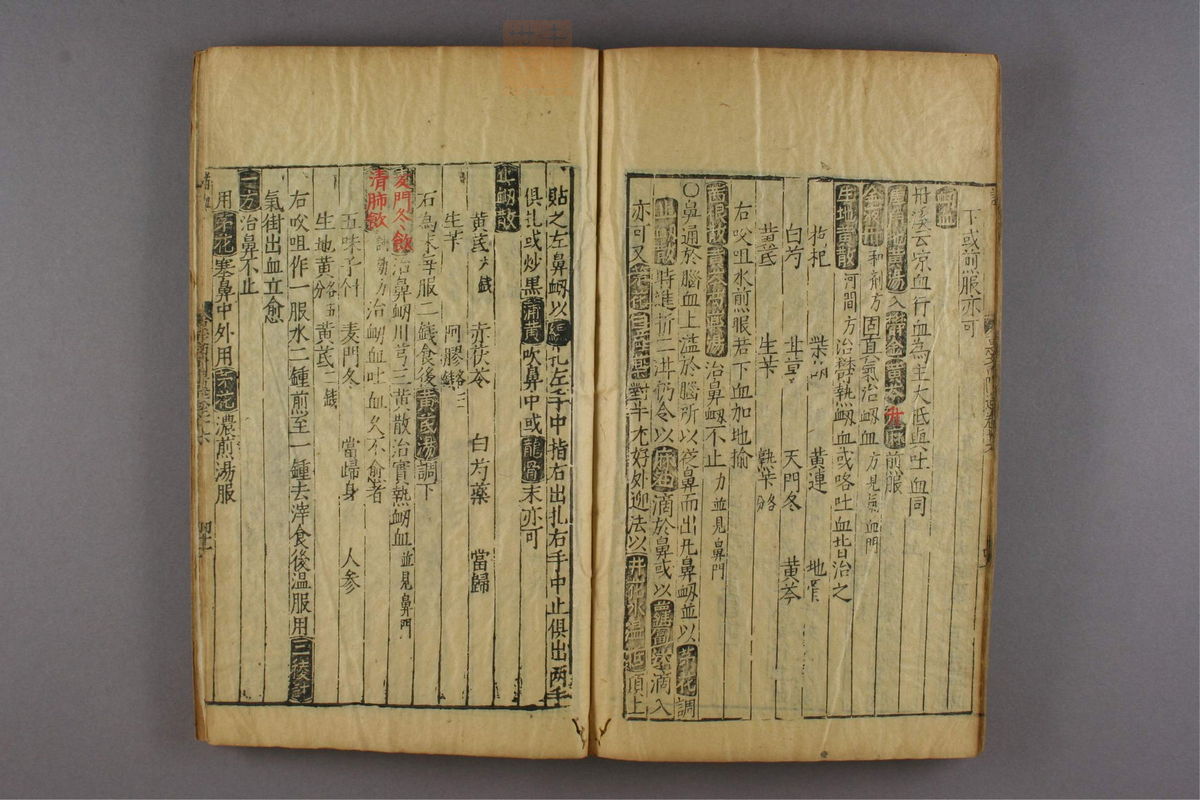 下或煎服亦可
衄血
丹溪云凉血行血為主大低與吐血同
犀角地黄湯入欝金黄芩升麻煎服
和剤方固真氣治衄血方見氣血門
生地黄散河間方治欝熱衄血或咯吐血皆治之
枸杞 柴胡 黄連 地骨
白芍 甘草 天門冬 黄芩
黄芪 生芐 熟芐
右㕮咀水煎服若下血加地榆
茜根散黄芩芍藥湯治鼻衄不止方並見鼻門
○鼻通於腦血上溢於腦所以從鼻而出凡鼻衄並以茅花調
止衄散時進折二泔仍令以麻油滴於鼻或以蘿蔔汁滴入
亦可又茅花白芍藥對半尤好外迎法以井花水温紙頂上
貼之左鼻衄以線扎左手中指右出扎右手中止俱出两手
俱扎或炒黒蒲黄吹鼻中或龍骨末亦可
止衄散
黄芪六錢 赤茯苓 白芍藥 當歸
生芐 阿膠各三錢
右為末每服二錢食後黄芪湯調下
麦門冬飲治鼻衄川芎三黄散治實熱衄血並見鼻門
清肺飲治衄血吐血久不愈者
五味子 麦門冬 當歸身 人参
生地黄各五分 黄芪二錢
右㕮咀作一服水二鍾煎至一鍾去滓食後温服用三稜針
氣街出血立愈
一方治鼻不止
用茅花塞鼻中外用茅花濃煎湯服